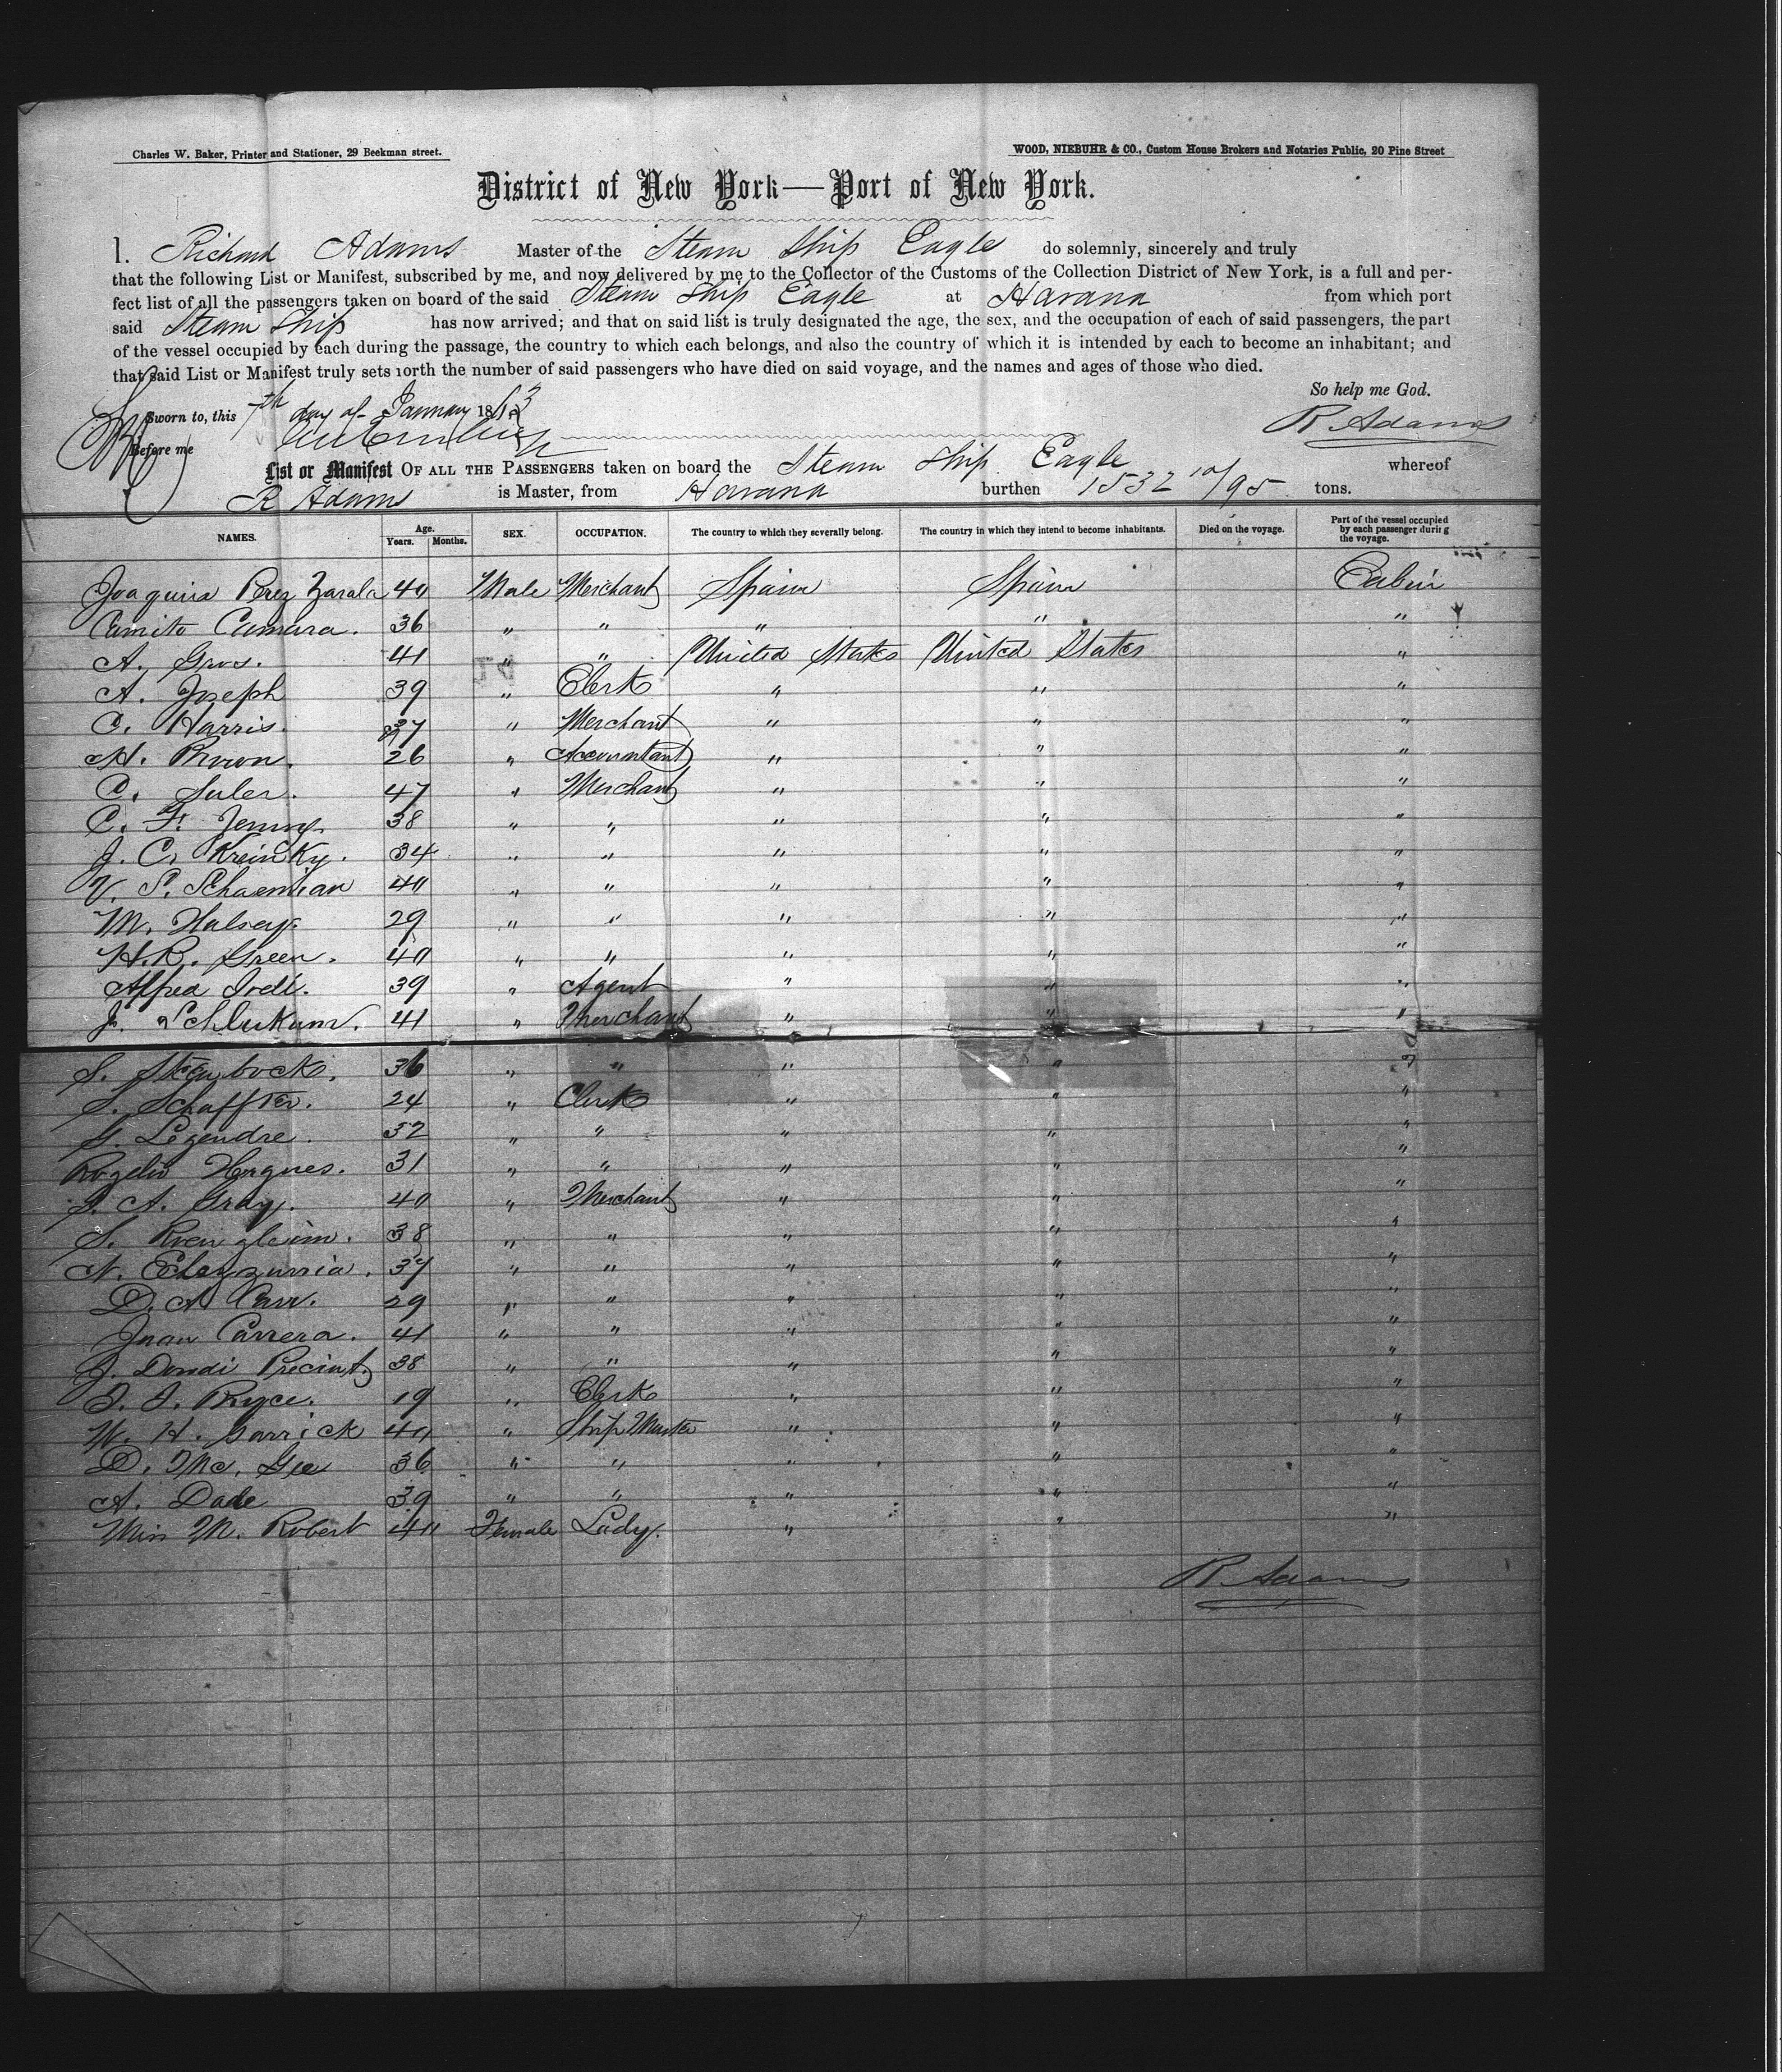 Charles W. Baker, Printer and Stationer, 29 Beekman street.
WOOD, NIEBUHR & CO., Custom House Brokers and Notaries Public, 20 Pine Street
District of New York—Port of New York.
I. Richard Adams Master of the Steam Ship Eagle do solemnly, sincerely and truly
that the following List or Manifest, subscribed by me, and now delivered by me to the Collector of the Customs of the Collection District of New York, is a full and per-
fect list of all the passengers taken on board of the said Steam Ship Eagle at Havana from which port
said Steam Ship has now arrived; and that on said list is truly designated the age, the sex, and the occupation of each of said passengers, the part
of the vessel occupied by each during the passage, the country to which each belongs, and also the country of which it is intended by each to become an inhabitant; and
that said List or Manifest truly sets forth the number of said passengers who have died on said voyage, and the names and ages of those who died.
So help me God.
Sworn to, this 7th day of January 1863 R Adams
Before me
List or Manifest OF ALL THE PASSENGERS taken on board the Steam Ship Eagle whereof
R Adams is Master, from Havana burthen 1532 10/95 tons.
NAMES. Age. Years. Months. SEX. OCCUPATION. The country to which they severally belong. The country in which they intend to become inhabitants. Died on the voyage. Part of the vessel occupied by each passenger during the voyage.
Joaquina Perez 40 Male Merchant Spain Spain Cabin
Camito Camara. 36 " " " " "
A. Gros. 41 " " United States United States "
A. Joseph 39 " Clerk " " "
C. Harris. 37 " Merchant " " "
H. Brown. 26 " Accountant " " "
C. Suler. 47 " Merchant " " "
C. F. 38 " " " " "
J. C. Kreinky. 34 " " " " "
V. S. 40 " " " " "
M. Halsey. 29 " " " " "
H. R. Green. 40 " " " " "
Alfred 39 " Agent " " "
J. 41 " Merchant " " "
S. 36 " " " " "
S. Schaffter. 24 " Clerk " " "
Legendre. 32 " " " " "
Rogelio 31 " " " " "
A. Gray. 40 " Merchant " " "
S. 38 " " " " "
N. 37 " " " " "
D. A Carr. 29 " " " " "
Juan Carrera. 41 " " " " "
J. Precint 38 " " " " "
Bryce. 19 " Clerk " " "
W. H. Garrick 40 " Ship Master " " "
D. Mc. Gee 36 " " " " "
A. Dade 39 " " " " "
Miss M. Robert 40 Female Lady. " " "
R. Adams